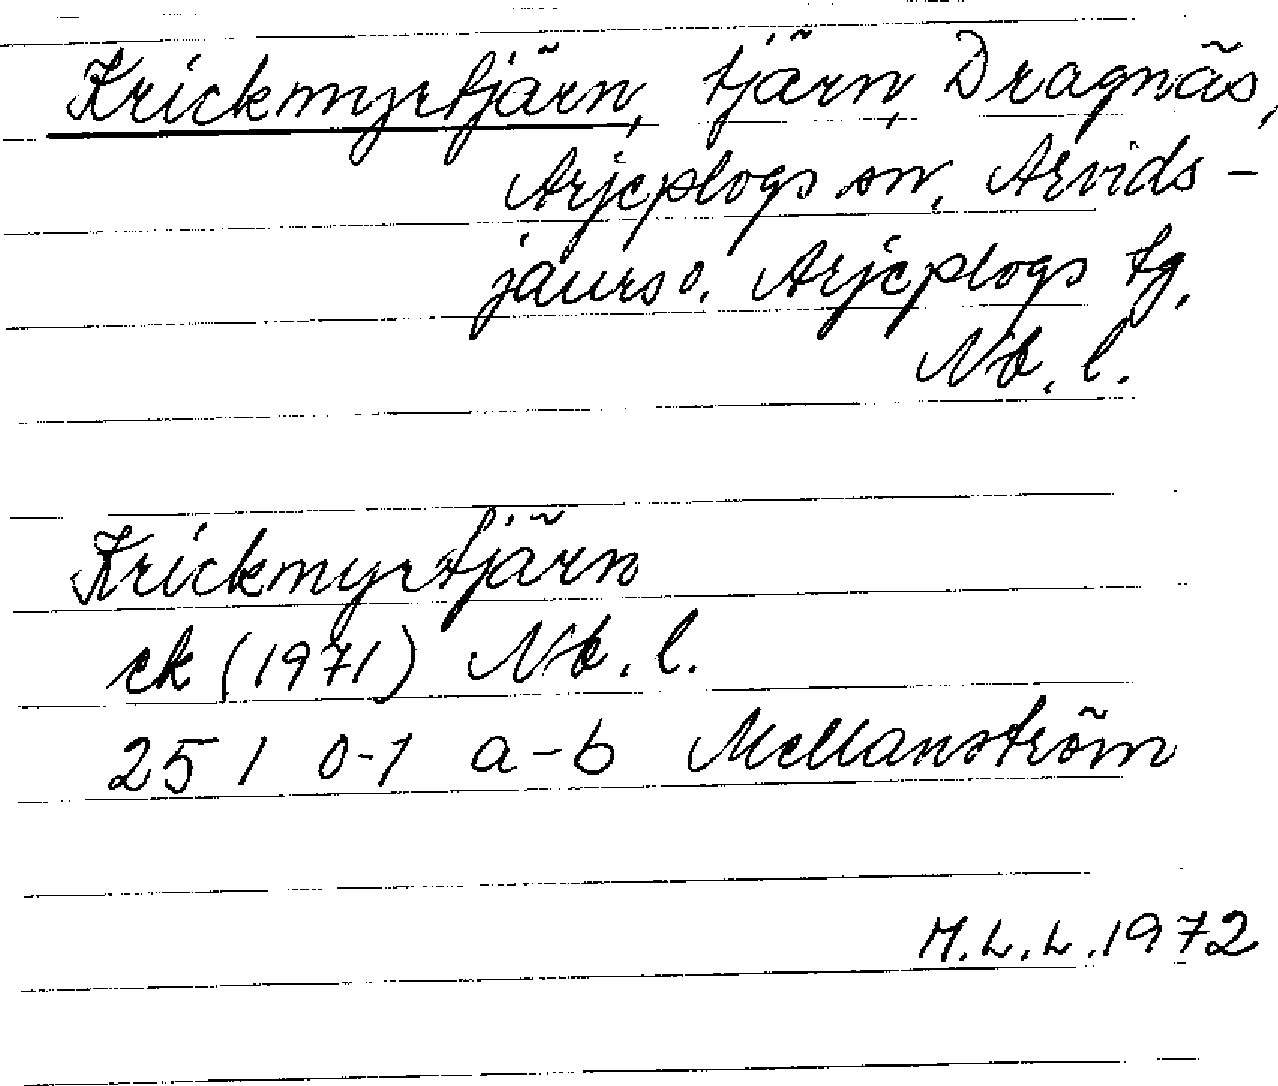 Krickmyrtjärn, tjärn, Dragnäs,
Arjeplogs sn, Arvids-
jaurs o. Arjeplogs tg,
Nb. l.
Krickmyrtjärn
ek (1971) Nb. l.
25 I 0-1 a-b Mellanström
M.L.L. 1972